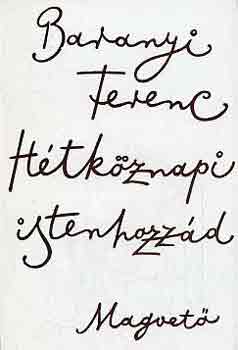 Baranyi
Ferenc
Hétköznapi
istenhozzád
Magvető